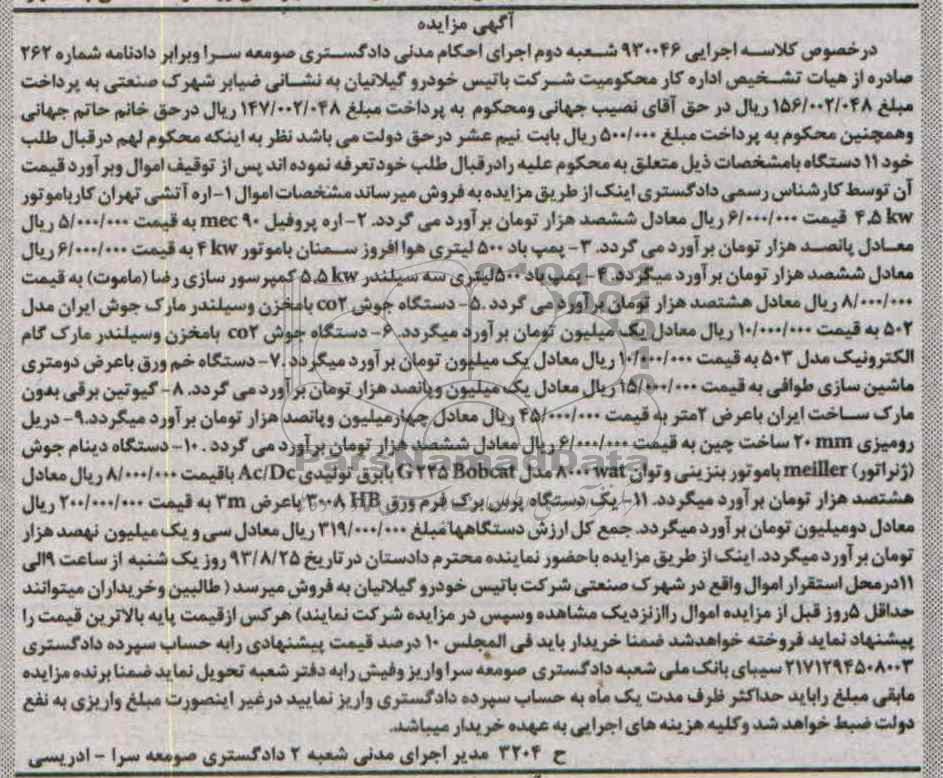 آگهی مزایده
درخصوص کلاسه اجرایی ۹۳۰۰۴۶ شعبه دوم اجرای احکام مدنی دادگستری صومعه سرا وبرابر دادنامه شماره ۲۶۲
صادره از هیات تشخیص اداره کار محکومیت شرکت باتیس خودرو گیلانیان به نشانی ضیابر شهرک صنعتی به پرداخت
مبلغ ۱۵۶/۰۰۲/۰۴۸ ریال در حق آقای نصیب جهانی ومحکوم به پرداخت مبلغ ۱۴۷/۰۰۲/۰۴۸ ریال درحق خانم حاتم جهانی
وهمچنین محکوم به پرداخت مبلغ ۵۰۰/۰۰۰ ریال بابت نیم عشر درحق دولت می باشد نظر به اینکه محکوم لهم درقبال طلب
خود ۱۱ دستگاه بامشخصات ذیل متعلق به محکوم علیه رادرقبال طلب خودتعرفه نموده اند پس از توقیف اموال وبرآورد قیمت
آن توسط کارشناس رسمی دادگستری اینک از طریق مزایده به فروش میرساند مشخصات اموال ۱-اره آتشی تهران کارباموتور
۴,۵ kw قیمت ۶/۰۰۰/۰۰۰ ریال معادل ششصد هزار تومان برآورد می گردد. ۲-اره پروفیل mec ۹۰ به قیمت ۵/۰۰۰/۰۰۰ ریال
معادل پانصد هزار تومان برآورد می گردد. ۳- پمپ باد ۵۰۰ لیتری هوا افروز سمنان باموتور ۴ kw به قیمت ۶/۰۰۰/۰۰۰ ریال
معادل ششصد هزار تومان برآورد میگردد. ۴- پمپ باد ۵۰۰لیتری سه سیلندر ۵.۵ kw کمپرسور سازی رضا (ماموت) به قیمت
۸/۰۰۰/۰۰۰ ریال معادل هشتصد هزار تومان برآورد می گردد. ۵- دستگاه جوش co۲ بامخزن وسیلندر مارک جوش ایران مدل
۵۰۲ به قیمت ۱۰/۰۰۰/۰۰۰ ریال معادل یک میلیون تومان برآورد میگردد. ۶- دستگاه جوش co۲ بامخزن وسیلندر مارک گام
الکترونیک مدل ۵۰۳ به قیمت ۱۰/۰۰۰/۰۰۰ ریال معادل یک میلیون تومان برآورد میگردد. ۷- دستگاه خم ورق باعرض دومتری
ماشین سازی طوافی به قیمت ۱۵/۰۰۰/۰۰۰ ریال معادل یک میلیون وپانصد هزار تومان برآورد می گردد. ۸- گیوتین برقی بدون
مارک ساخت ایران باعرض ۲متر به قیمت ۴۵/۰۰۰/۰۰۰ ریال معادل چهارمیلیون وپانصد هزار تومان برآورد میگردد.۹- دریل
رومیزی ۲۰ mm ساخت چین به قیمت ۶/۰۰۰/۰۰۰ ریال معادل ششصد هزار تومان برآورد می گردد . ۱۰- دستگاه دینام جوش
(ژنراتور) meiller باموتور بنزینی و توان ۸۰۰۰ wat مدل G ۲۲۵ Bobcat بابرق تولیدی Ac/Dc باقیمت ۸/۰۰۰/۰۰۰ ریال معادل
هشتصد هزار تومان برآورد میگردد. ۱۱- یک دستگاه پرس برک فرم ورق ۳۰۰۸ HB باعرض ۳m به قیمت ۲۰۰/۰۰۰/۰۰۰ ریال
معادل دومیلیون تومان برآورد میگردد. جمع کل ارزش دستگاهها مبلغ ۳۱۹/۰۰۰/۰۰۰ ریال معادل سی و یک میلیون نهصد هزار
تومان برآورد میگردد. اینک از طریق مزایده باحضور نماینده محترم دادستان در تاریخ ۹۳/۸/۲۵ روز یک شنبه از ساعت ۹الی
۱۱درمحل استقرار اموال واقع در شهرک صنعتی شرکت باتیس خودرو گیلانیان به فروش میرسد ( طالبین وخریداران میتوانند
حداقل ۵روز قبل از مزایده اموال راازنزدیک مشاهده وسپس در مزایده شرکت نمایند) هرکس ازقیمت پایه بالاترین قیمت را
پیشنهاد نماید فروخته خواهدشد ضمنا خریدار باید فی المجلس ۱۰ درصد قیمت پیشنهادی رابه حساب سپرده دادگستری
۲۱۷۱۲۹۴۵۰۸۰۰۳ سیبای بانک ملی شعبه دادگستری صومعه سرا واریز وفیش رابه دفتر شعبه تحویل نماید ضمنا برنده مزایده
مابقی مبلغ راباید حداکثر ظرف مدت یک ماه به حساب سپرده دادگستری واریز نمایید درغیر اینصورت مبلغ واریزی به نفع
دولت ضبط خواهد شد وکلیه هزینه های اجرایی به عهده خریدار میباشد.
ح ۳۲۰۴ مدیر اجرای مدنی شعبه ۲ دادگستری صومعه سرا - ادریسی